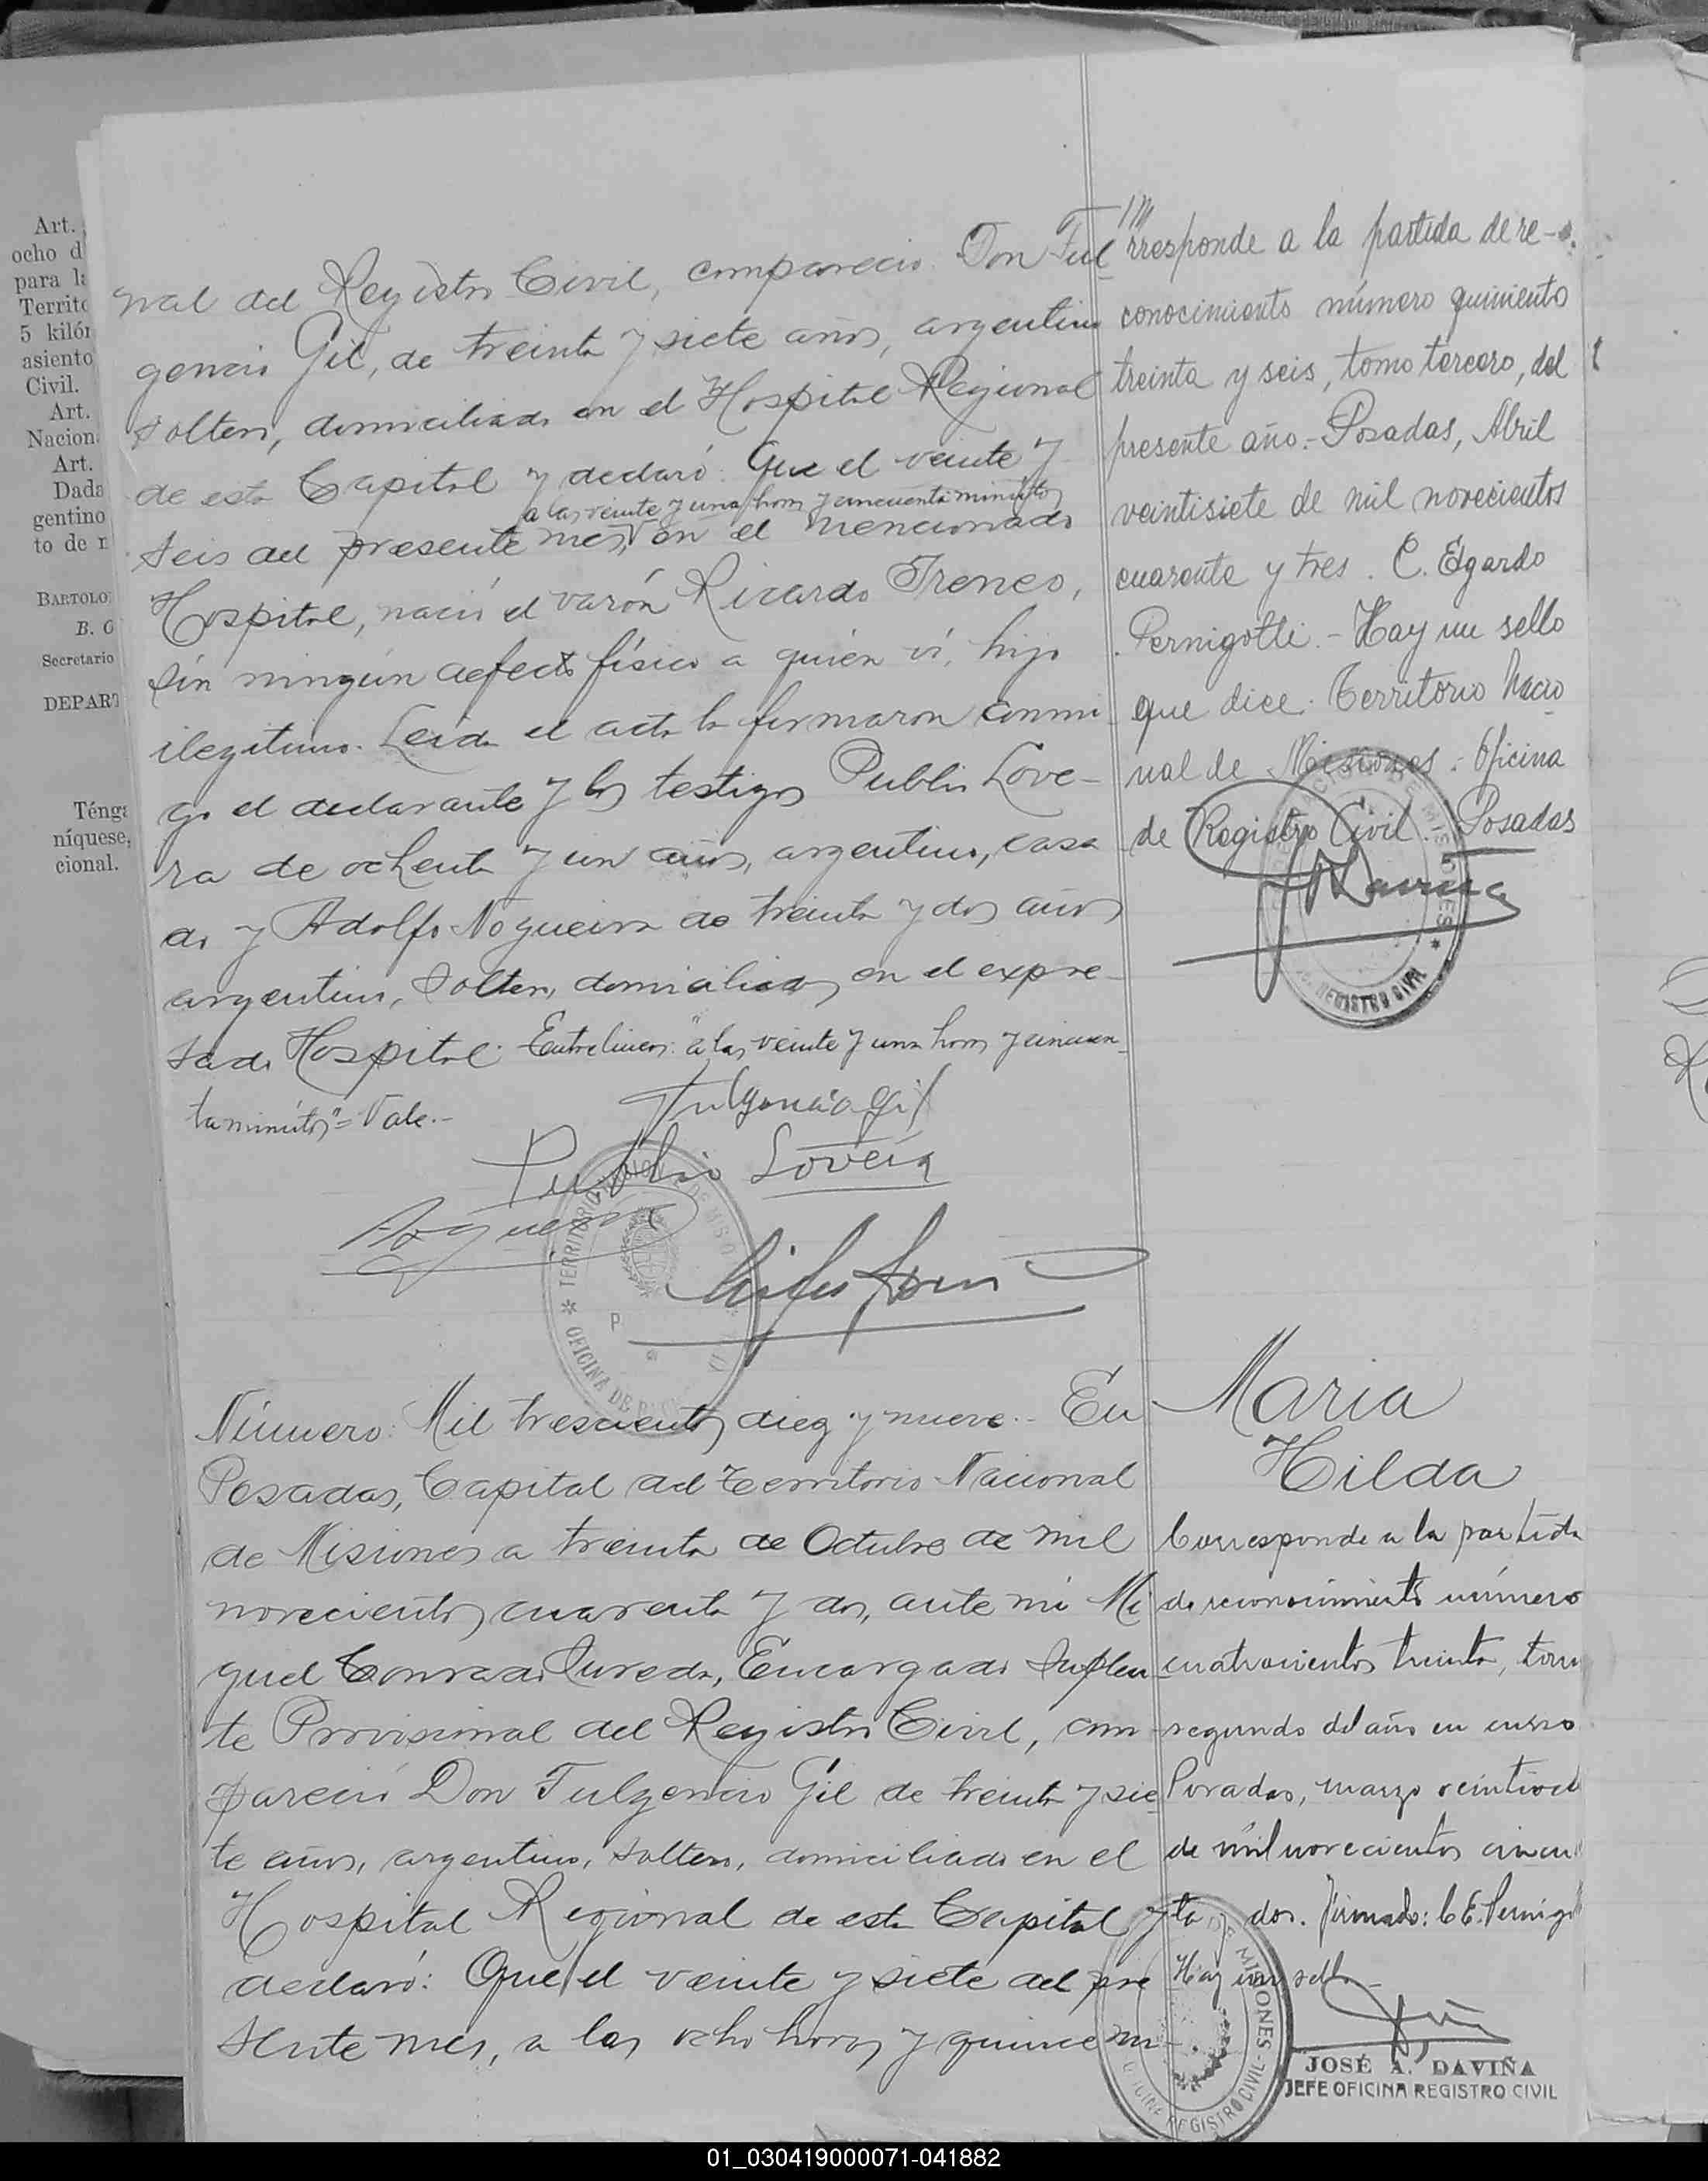 Art.
ocho d
para la
Territo
5 kilór
asiento
Civil.
Art.
Nacion
Art.
Dada
gentino
to de n
BARTOLO
B. G
Secretario
DEPART
Ténga
níquese,
cional.
nal del Registro Civil, compareció Don Ful
gencio Gil, de treinta y siete años, argentino
soltero, domiciliado en el Hospital Regional
de esta Capital y declaró: Que el veinte y
a las veinte y una horas y cincuenta minutos
seis del presente mes, en el mencionado
Hospital, nació el varón Ricardo Ireneo,
sin ningún defecto físico a quién ví, hijo
ilegítimo. Leída el acta la firmaron conmi
go el declarante y los testigos Publio Love-
ra de ochenta y un años, argentino, casa
do y Adolfo Nogueira de treinta y dos años
argentino, soltero, domiciliados en el expre-
sado Hospital. Entrelíneas: "a las veinte y una horas y cincuen-
ta minutos" = Vale.-
Fulgencio Gil
Publio Lovera
TERRITORIO DE MISIONES
OFICINA DE
rresponde a la partida de re-
conocimiento número quiniento
treinta y seis, tomo tercero, del
presente año.- Posadas, Abril
veintisiete de mil novecientos
cuarenta y tres. C. Edgardo
Pernigotti.- Hay un sello
que dice: Territorio Nacio
nal de Misiones: Oficina
de Registro Civil. Posadas
DE MISIONES
REGISTRO CIVIL
Número: Mil trescientos diez y nueve.- En
Posadas, Capital del Territorio Nacional
de Misiones a treinta de Octubre de mil
novecientos cuarenta y dos, ante mí Mi
guel Conrado Cureda, Encargado Suplen
te Provisional del Registro Civil, com
pareció Don Fulgencio Gil de treinta y sie
te años, argentino, soltero, domiciliado en el
Hospital Regional de esta Capital y
declaró: Que el veinte y siete del pre
sente mes, a las ocho horas y quince mi-
Maria
Hilda
Corresponde a la partida
de reconocimiento número
cuatrocientos treinta, tomo
segundo del año en curso
Posadas, marzo veintiocho
de mil novecientos cincuen
ta y dos. Firmado: C E. Pernigotti
Hay un sello.-
DE MISIONES
OFICINA REGISTRO CIVIL
JOSÉ A. DAVIÑA
JEFE OFICINA REGISTRO CIVIL
01_030419000071-041882